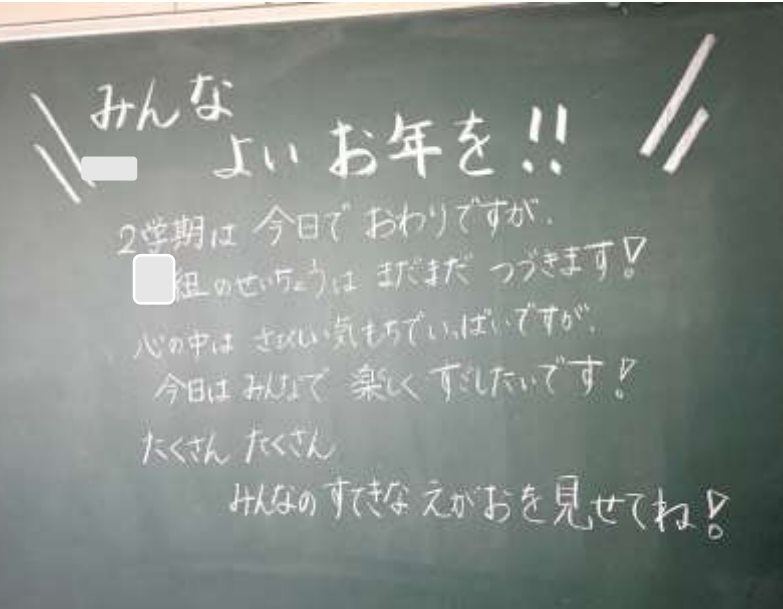 みんな
よいお年を!!
2学期は 今日で おわりですが、
組のせいちょうは まだまだ つづきます!
心の中は さびしい気もちでいっぱいですが、
今日は みんなで 楽しく すごしたいです!
たくさん たくさん
みんなの すてきな えがおを見せてね!